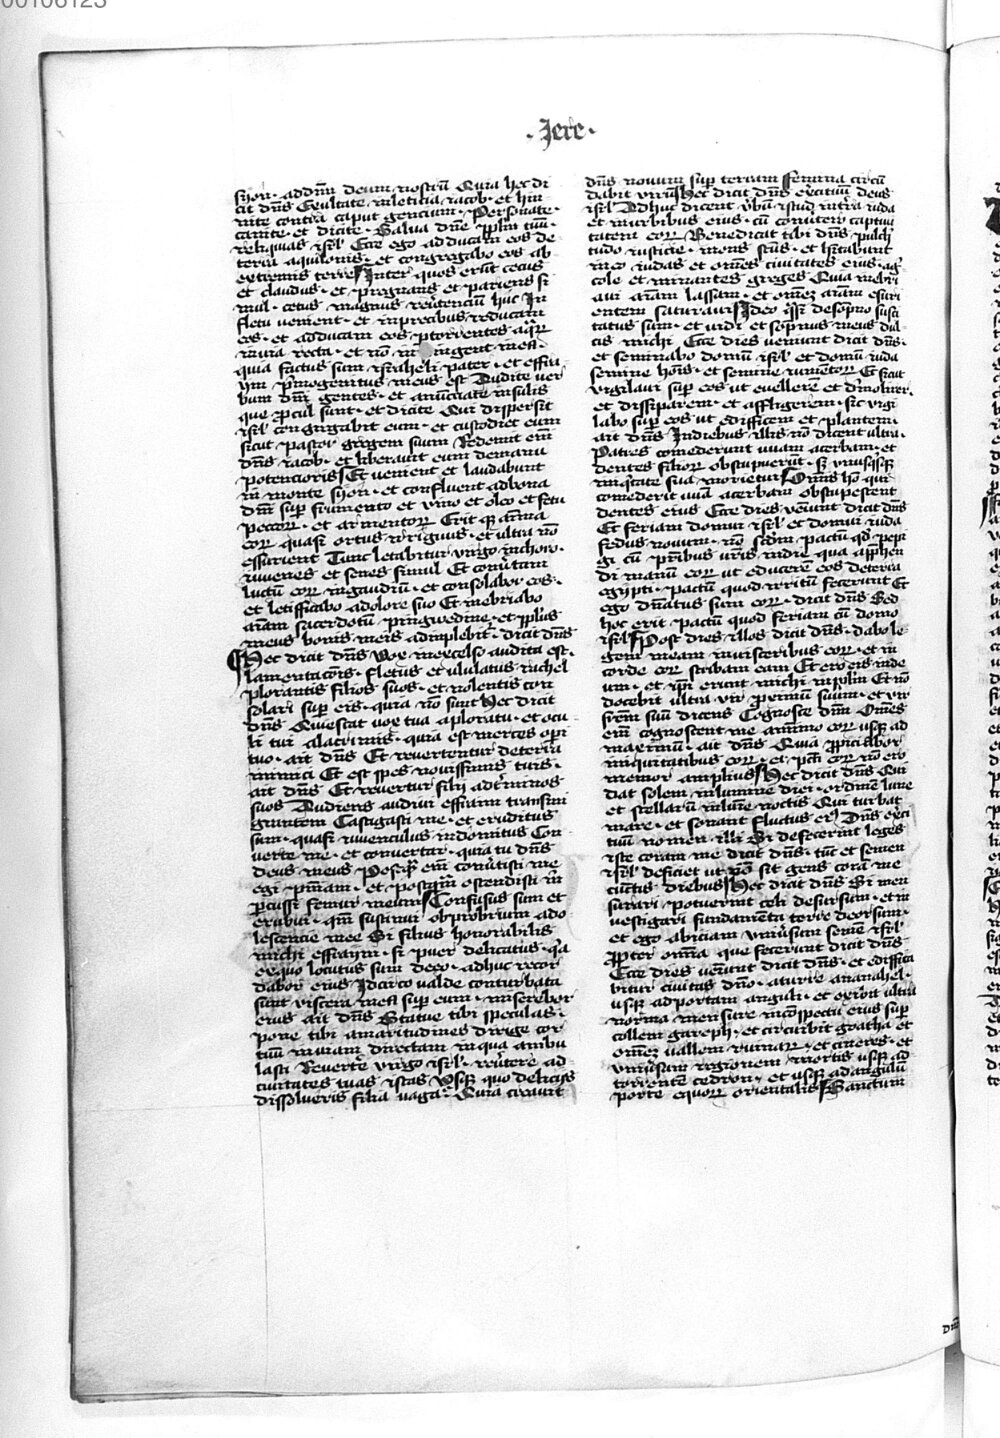 00106123
· Jere ·
syon · ad dn̄m deum nostrū Quia hec di
cit dn̄s Exultate in leticia iacob · et hin
nite contra caput gencium · Personate ·
canite · et dicite · Salua dn̄e pplm tuū ·
reliquias isrl' Ecce ego adducam eos de
terra aquilonis · et congregabo eos ab
extremis terre Inter quos erūt cecus
et claudus · et pregnans et pariens si
mul · cetus magnus reūtencium huc In
fletu uenient · et in precibus reducam
eos · et adducam eos p torrentes aq̄ꝝ
in uia recta · et nō in ingent in ea ·
quia factus sum israheli pater · et effra
ym p̄mogenitus meus est Audite ver
bum dn̄i gentes · et anūciate in insulis
que ꝓcul sunt · et dicite Qui dispersit
isrl' congregabit eum · et custodiet eum
sicut pastor gregem suum Redemit em̄
dn̄s iacob · et liberauit eum de manu
potencioris Et uenient et laudabunt
in monte syon · et confluent ad bona
dn̄i sup frumento et vino et oleo et fetu
pecorꝝ · et armentorꝝ Erit qꝫ aīma
eorꝝ quasi ortus irriguus · et ultra nō
esurient Tunc letabitur virgo in choro ·
iuuenes et senes simul Et conūtam
luctū eorꝝ in gaudiū · et consolabor eos ·
et letificabo a dolore suo Et inebriabo
aīam sacerdotū pinguedine · et pplus
meus bonis meis adimplebit̄ · dicit dn̄s
Hec dicit dn̄s Vox in excelso audita est ·
lamentacōis · fletus et ululatus rachel
plorantis filios suos · et nolentis con
solari sup eis · quia nō sunt Hec dicit
dn̄s Quiescat uox tua a ploratu · et ocu
li tui a lacrimis · quia est merces opi
tuo · ait dn̄s Et reuertentur de terra
inimici Et est spes nouissimis tuis ·
ait dn̄s Et reuertūr filij ad t̄minos
suos Audiens audiui effraim transmi
grantem Castigasti me · et eruditus
sum · quasi iuuenculus indomitus Con
uerte me · et conuertar · quia tu dn̄s
deus meus Postqꝫ em̄ conūtisti me
egi pn̄iam · et postqꝫ ostendisti m̄
ꝑcussi femur meum Confusus sum et
erubui · qm̄ sustinui obprobrium ado
lescencie mee Si filius honorabilis
michi effraym · si puer delicatus · qa
ex quo locutus sum de eo · adhuc recor
dabor eius Idcirco valde conturbata
sunt viscera mea sup eum · miserebor
eius ait dn̄s Statue tibi speculas ·
pone tibi amaritudines dirige cor
tuū in uiam directam in qua ambu
lasti Reuert̄e virgo isrl' · reūtere ad
ciuitates tuas istas Vsqꝫ quo delicijs
dissolueris filia uaga · Quia creauit
dn̄s nouum sup terram Femina circū
dabit virū Hec dicit dn̄s ex̄cituū deus
isrl' Adhuc dicent v̄bū istud in t̄ra iuda
et in urbibus eius · cū conūtero captiui
tatem eorꝝ Benedicat tibi dn̄s pulch'
tudo iusticie · mons scūs · et hītabunt
in eo iudas et om̄es ciuitates eius · ag'
cole et minantes greges Quia inebri
aui aīam lassam · et omēz aīam esuri
entem saturaui Ideo q̄si de sōpno susci
tatus sum · et uidi et sōpnus meus dul
cis michi Ecce dies veniunt dicit dn̄s ·
et seminabo domū isrl' et domū iuda
semine hōis · et semine iumētorꝝ Et sicut
vigilaui sup eos ut euellerē et d̄molirer ·
et dissiparem · et affligerem · sic vigi
labo sup eos ut edificem et plantem
ait dn̄s In diebus illis nō dicent ultra ·
Patres comederunt uuam acerbam · et
dentes filiorꝝ obstupuerūt · sꝫ vnusqsqꝫ
in iq̄tate sua morietur Omīs hō qui
comederit uuā acerbam obstupescent
dentes eius Ecce dies veniunt dicit dn̄s
Et feriam domui isrl' et domui iuda
fedus nouum · nō scdm pactū qd pepi
gi cū pribus vr̄is in die qua app̄hen
di manū eorꝝ ut educerē eos de terra
egypti · pactū quod irritū fecerunt Et
ego dn̄atus sum eorꝝ · dicit dn̄s Sed
hoc erit pactū quod feriam cū domo
isrl' Post dies illos dicit dn̄s · dabo le
gem meam in uisceribus eorꝝ · et in
corde eorꝝ scribam eam Et ero eis in de
um · et ip̄i erunt michi in pplm Et nō
docebit ultra vir pximū suum · et vir
frēm suū dicens Cognosce dn̄m Omēs
em̄ cognoscent me a minimo eorꝝ usqꝫ ad
maximū · ait dn̄s Quia ꝓpiciabor
iniquitatibus eorꝝ · et pcti eorꝝ nō ero
memor amplius Hec dicit dn̄s Qui
dat solem in lumine diei · ordinē lune
et stellarū in lum̄e noctis Qui turbat
mare · et sonant fluctus eī Dn̄s ex̄ci
tuū nomen illi Si defecerint leges
iste coram me dicit dn̄s · tūc et semen
isrl' deficiet ut nō sit gens corā me
cūctis diebus Hec dicit dn̄s Si men
surari potuerint celi desursum · et in
vestigari fundamēta terre deorsum ·
et ego abiciam vniūsum semē isrl'
ꝓpter omīa que fecerunt dicit dn̄s
Ecce dies ueniūt dicit dn̄s · et edifica
bitur ciuitas dn̄o · a turre ananahel ·
usqꝫ ad portam anguli · et exibit ultra
norma mensure in cōspectu eius sup
collem gareph · et circuibit goatha et
omēz vallem ruinarꝝ · et cineres · et
vniūsam regionem mortis usqꝫ ad
torrentē cedron · et usqꝫ ad angulū
porte equorꝝ orientalis Sanctum